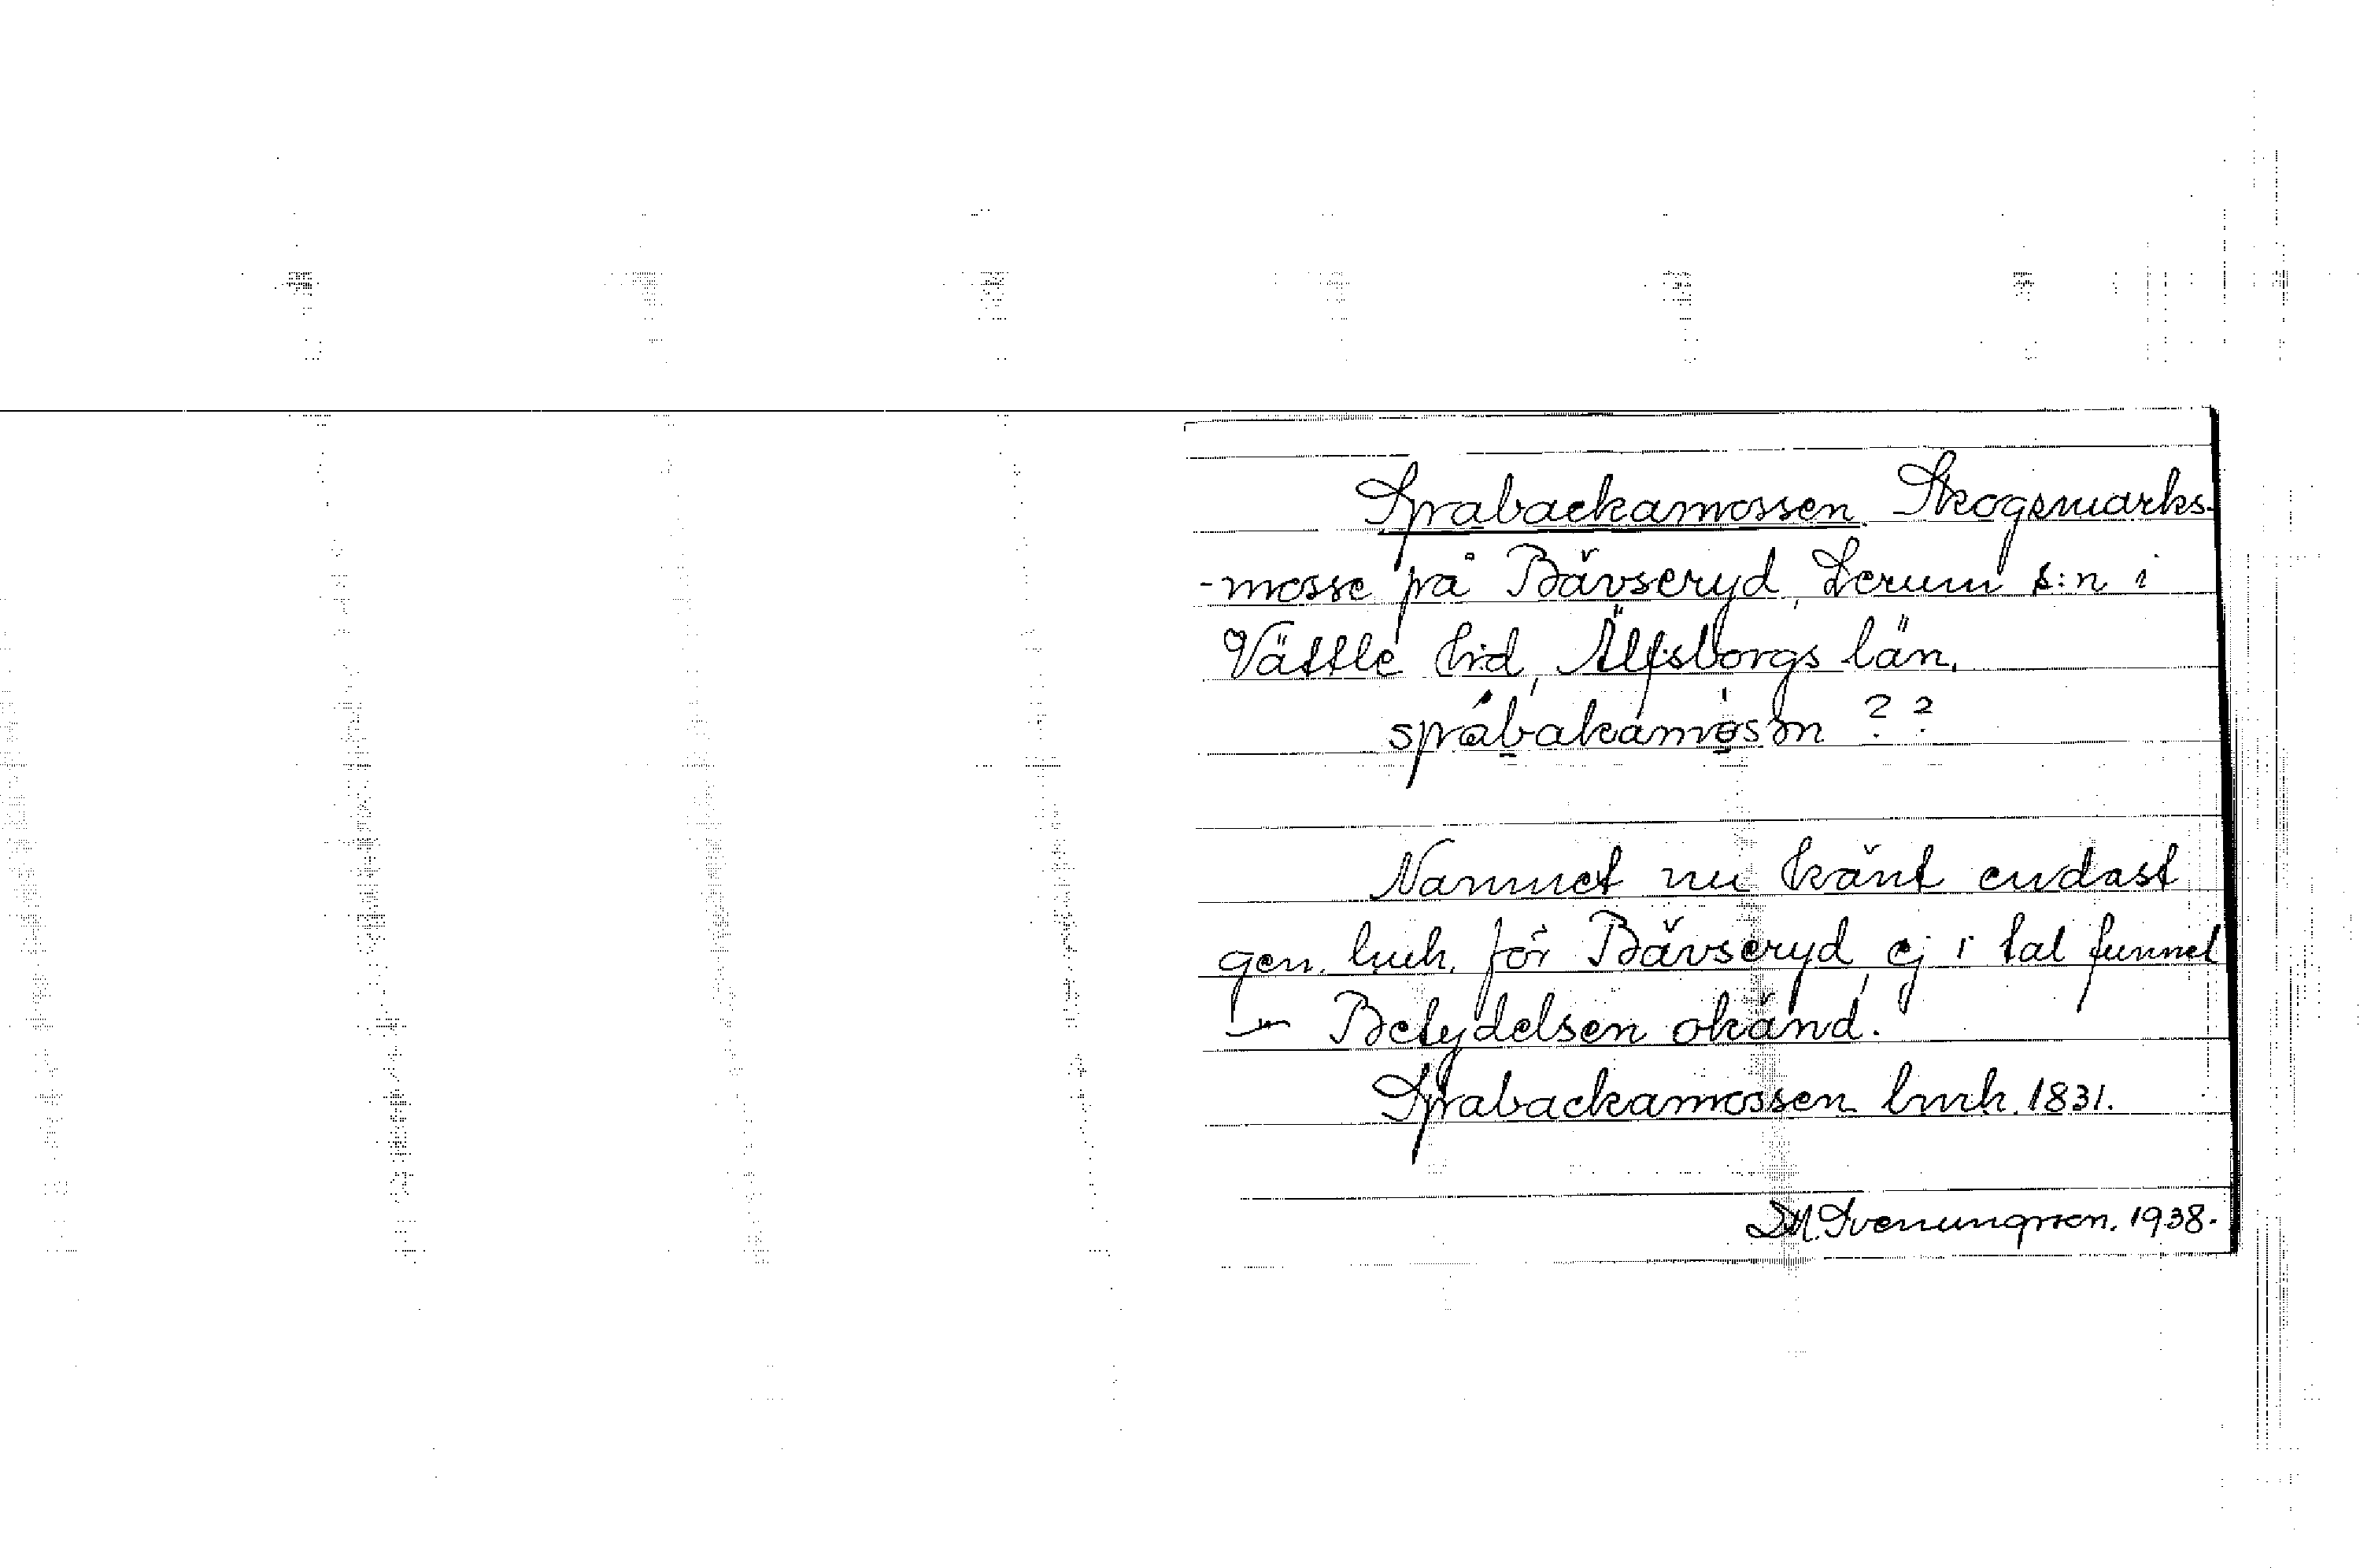 Sprabackamossen. Skogsmarks-
-mosse på Bävseryd, Lerum s:n i
Vättle hd, Älfsborgs län.
språbakamosm ??
Namnet nu känt endast
gen. lmh. för Bävseryd, ej i tal funnet
— Betydelsen okänd.
Sprabackamossen lmh. 1831.
D.M. Svenungsson. 1938.